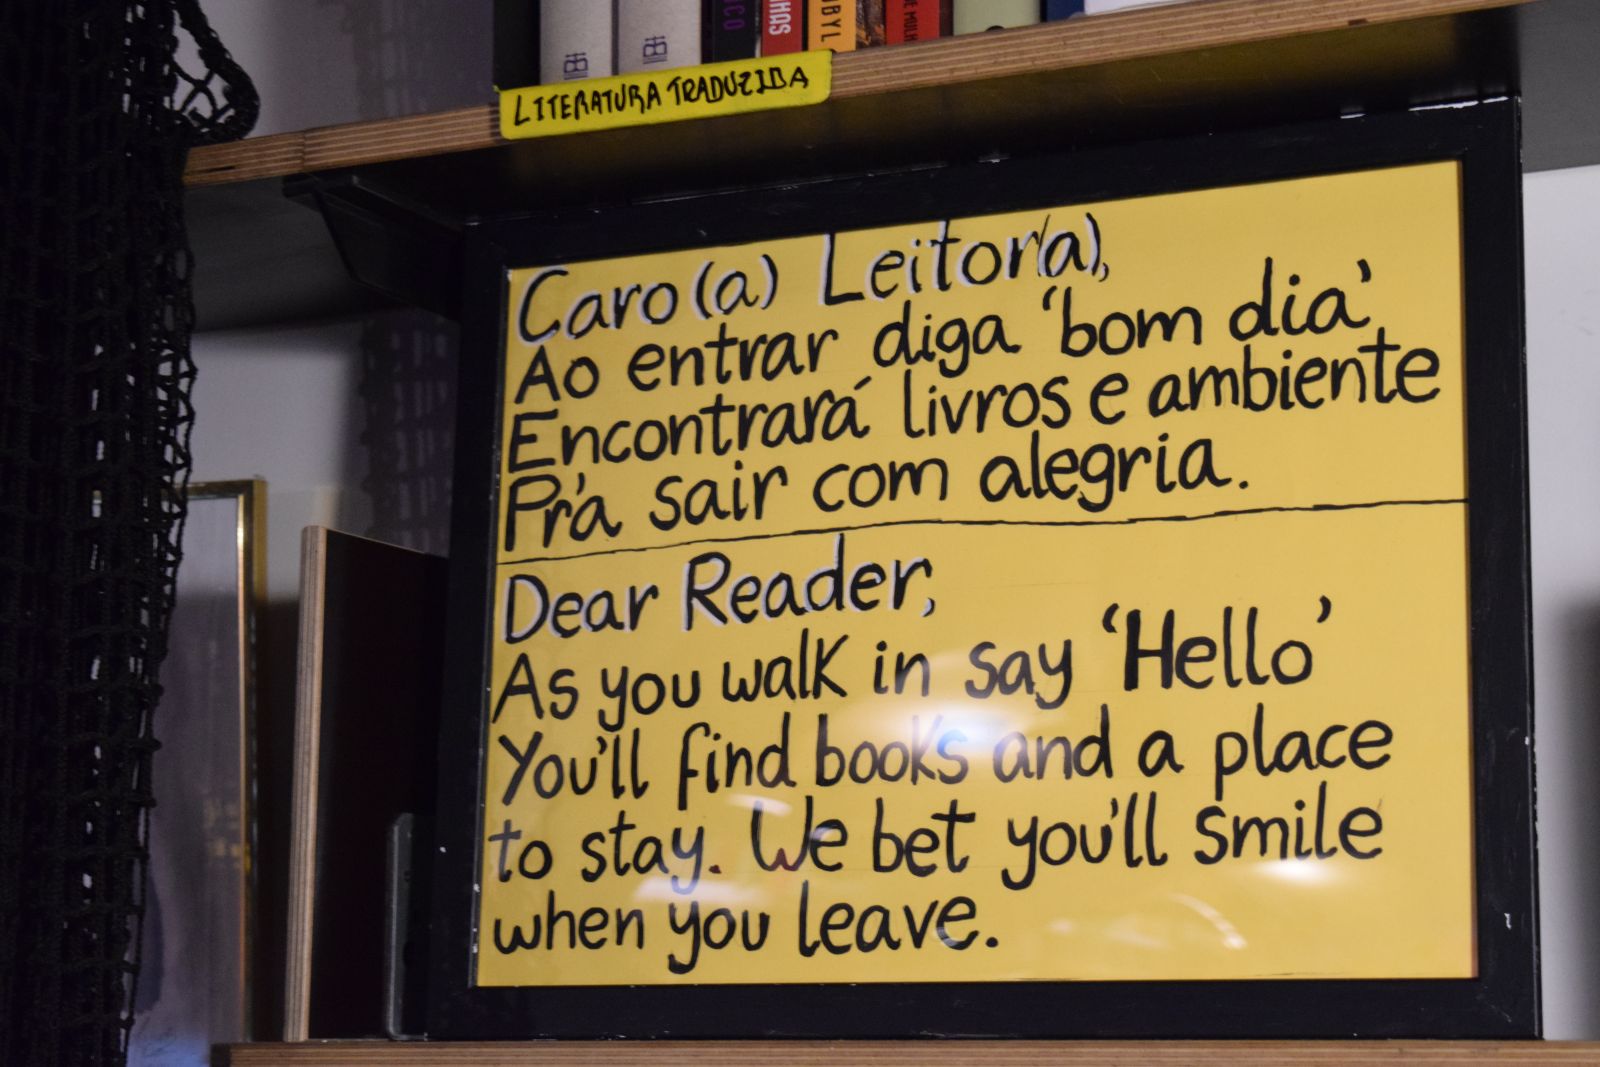 LITERATURA TRADUZIDA
Caro(a) Leitor(a),
Ao entrar diga 'bom dia'
Encontrará livros e ambiente
Prá sair com alegria.
Dear Reader,
As you walk in say 'Hello'
You'll find books and a place
to stay. We bet you'll smile
when you leave.